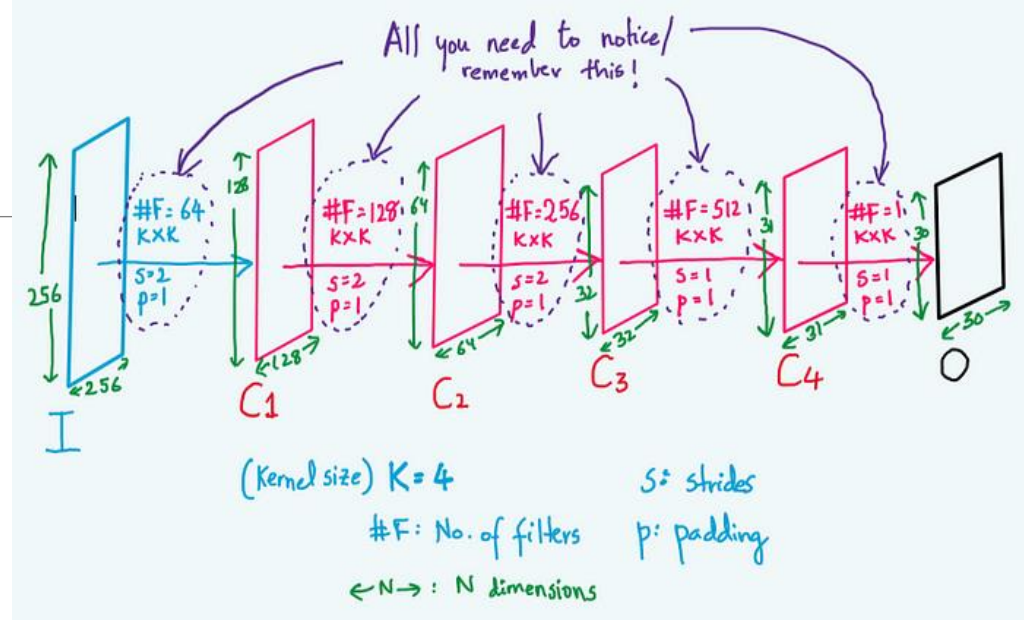 All you need to notice/
remember this!
256
256
I
#F: 64
K×K
S=2
p=1
128
128
C1
#F=128
K×K
S=2
p=1
64
64
C2
#F=256
K×K
S=2
p=1
32
32
C3
#F=512
K×K
S=1
p=1
31
31
C4
#F=1
K×K
S=1
p=1
30
30
O
(Kernel size) K=4
S: strides
#F: No. of filters
p: padding
←N→: N dimensions